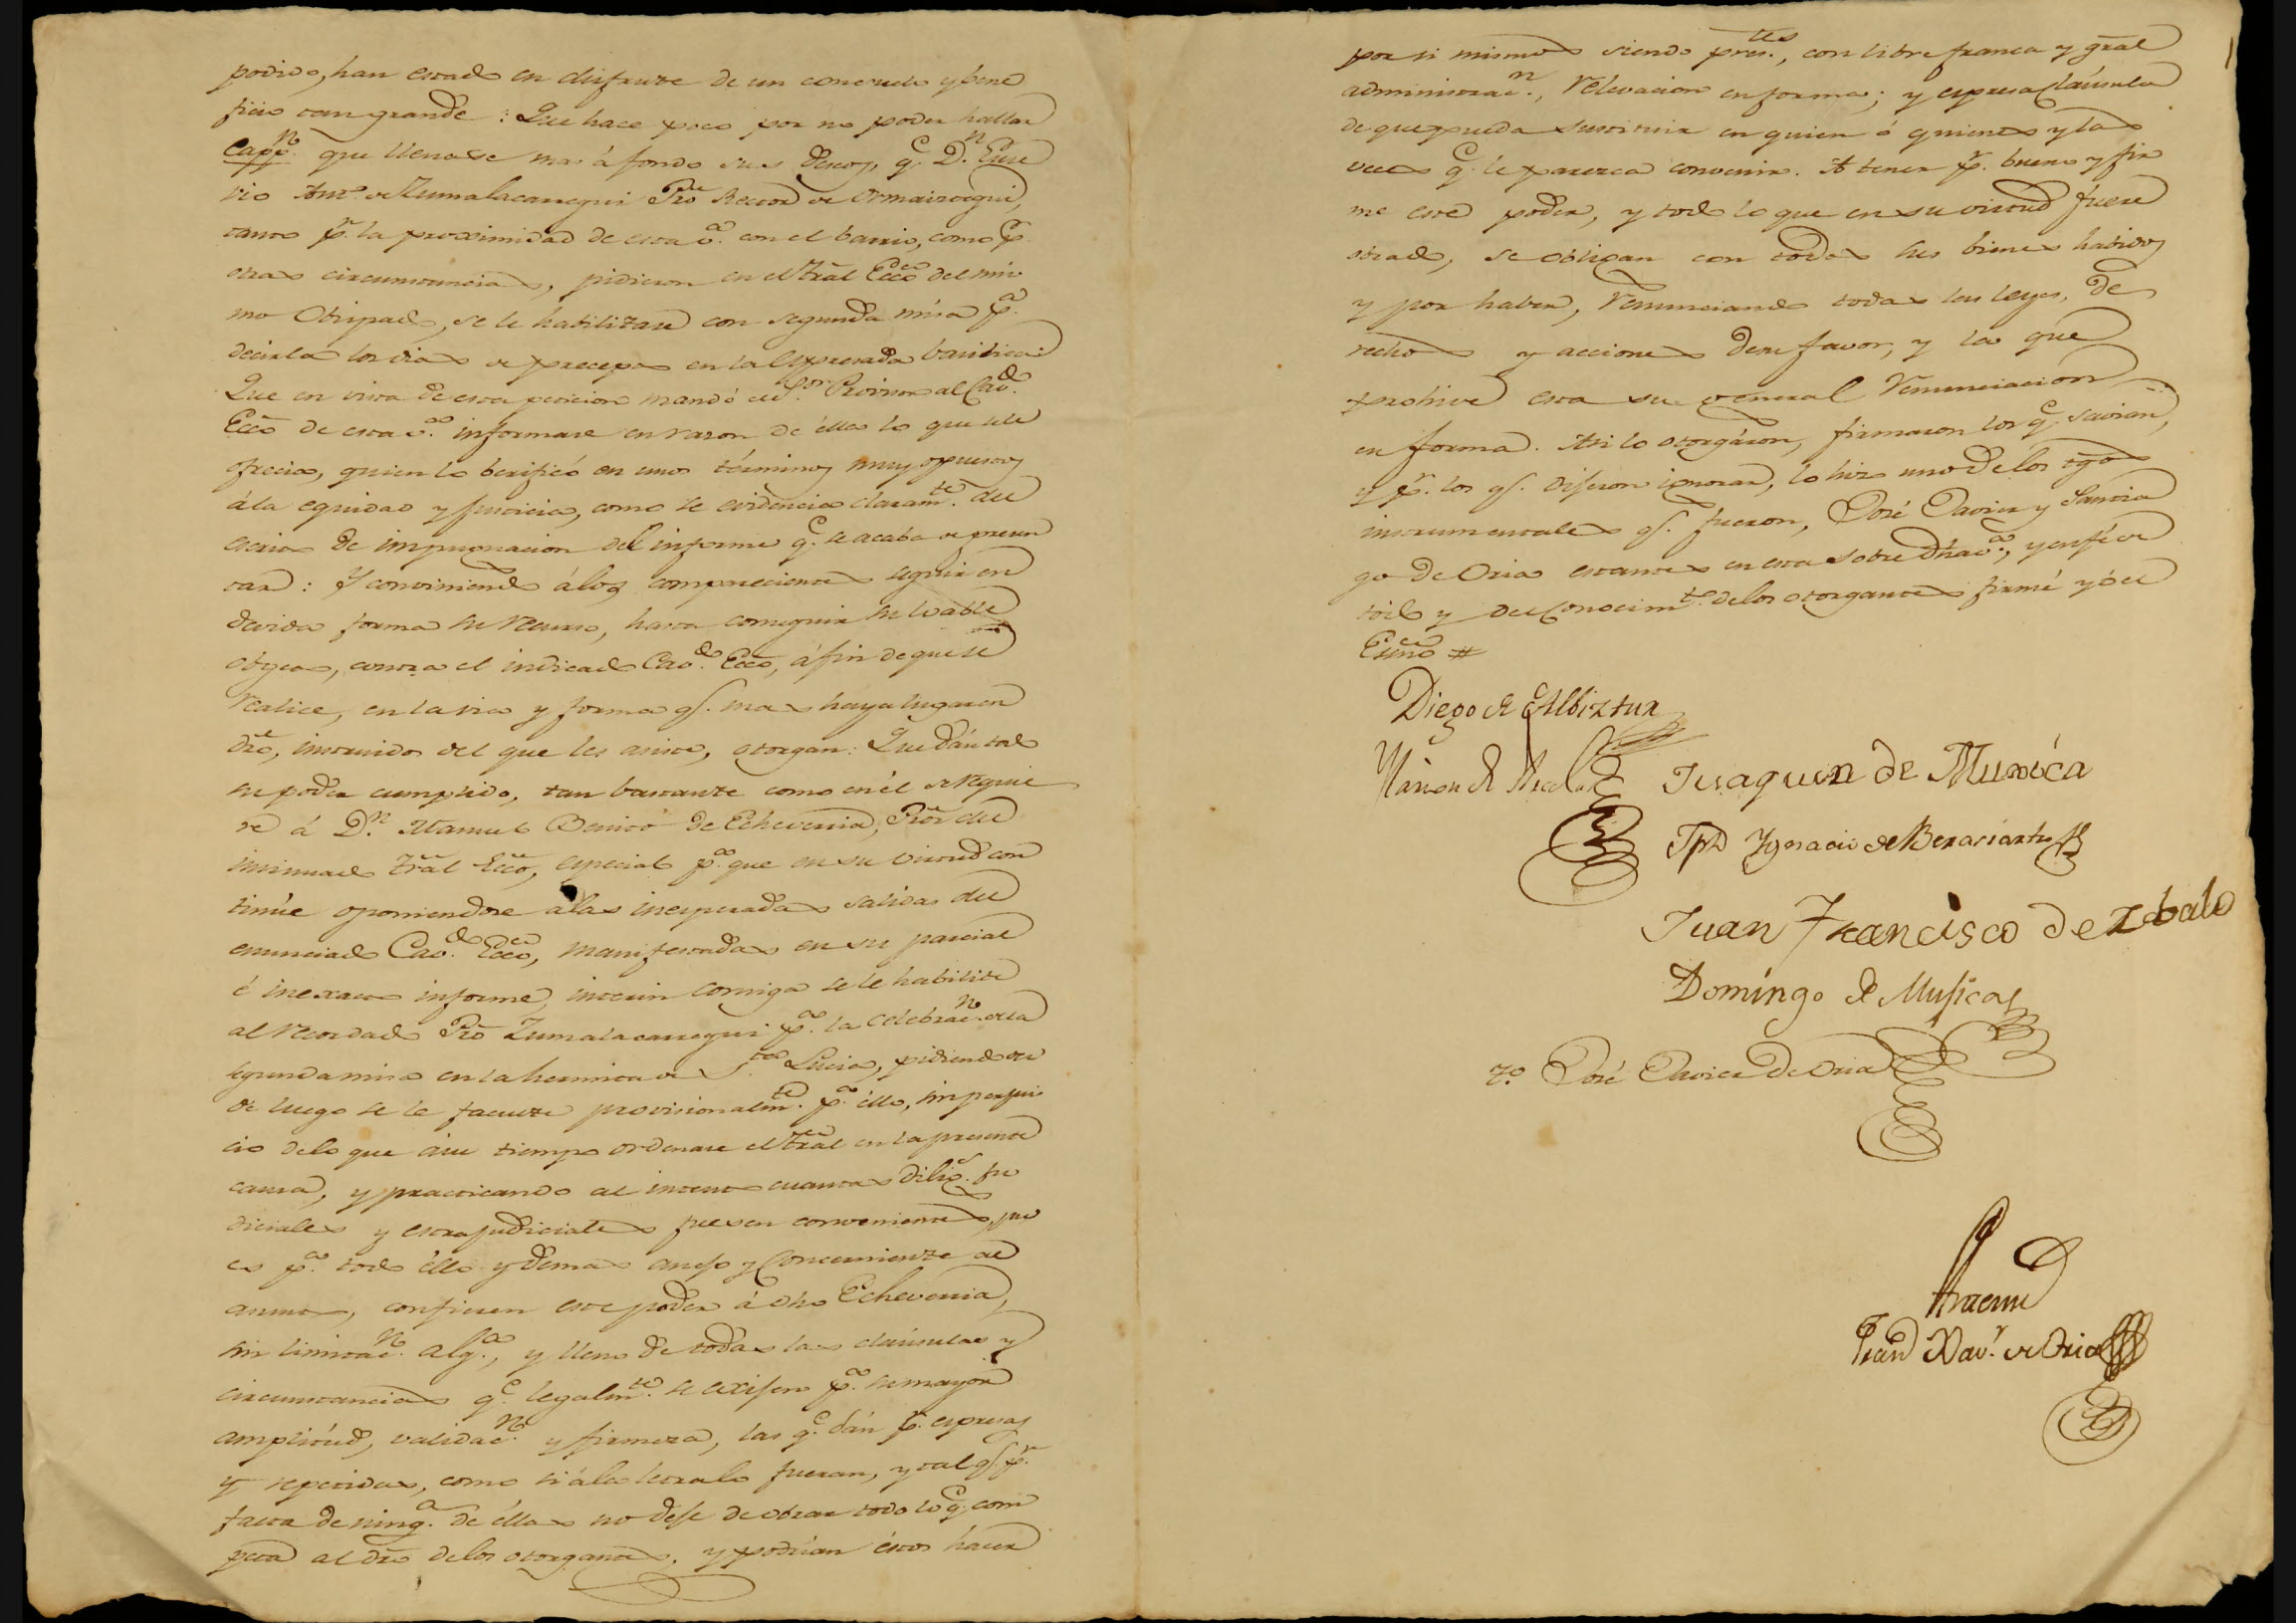 podido, han estado en disfrute de un consuelo y bene
ficio tan grande: Que hace poco por no poder hallar
Capp.n que llenase mas á fondo sus deseos, q.e D.n Euse
vio Ant.o de Zumalacarregui Pro Rector de Ormaiztegui,
tanto p.r la proximidad de esta v.a con el barrio, como p.r
otras circunstancias, pidieron en el Tral Ecco del mis
mo Obispado, se le habilitase con segunda misa p.a
decirla los dias de precepto en la Expresada basilica:
Que en vista de esta peticion mandó el S.or Provisor al Cav.do
Ecco de esta v.a informase en razon de ella lo que se le
ofrecia, quien lo berificó en unos términos muy opuestos
á la equidad y justicia, como se evidencia claram.te del
escrito de impugnacion del informe q.e se acaba de presen
tar: Y conviniendo á los comparecientes seguir en
devida forma su recurso, hasta conseguir su loable
objeto, contra el indicado Cav.do Ecco, á fin de que se
realice, en la via y forma q.e mas haya lugar en
dro, instruidos del que les asiste, otorgan: Que dán todo
su poder cumplido, tan bastante como en él se requie
re á D.n Manuel Benito de Echeverria, Pror del
insinuado Tral Ecco, especial p.a que en su virtud con
tinúe oponiendose á las inesperadas salidas del
enunciado Cav.do Ecco, manifestadas en su parcial
é inexacto informe, interin consiga se le habilite
al recordado Pro Zumalacarregui p.a la celebrac.n de la
segunda misa en la hermita de S.ta Lucia, pidiendo des
de luego se le faculte provisionalm.te p.a éllo, sin perjui
cio de lo que á su tiempo ordenare el Tral en la presente
causa, y practicando al intento cuantas dilig.s ju
diciales y estrajudiciales fuesen convenientes, pu
es p.a todo éllo y demas anejo y Concerniente al
asunto, confieren este poder á dho Echeverria,
sin limitac.n alg.a, y lleno de todas las cláusulas y
circunstancias q.e legalm.te se exijen p.a su mayor
amplitud, validac.n y firmeza, las q.e dán p.r espresas
y repetidas, como si á la letra lo fueran, y tal q.e p.r
falta de ning.a de éllas no deje de obrar todo lo q.e com
peta al dro de los otorgantes, y podrian éstos hacer
por si mismos siendo pres.tes, con libre franca y gral
administrac.n, relevacion en forma; y espresa Cláusula
de que pueda sustituir en quien ó quienes y las
veces q.e le parezca convenir. A tener p.r bueno y fir
me este poder, y todo lo que en su virtud fuere
obrado, se obligan con todos sus bienes habidos
y por haber, renunciando todas las leyes, de
rechos y acciones de su favor, y la que
prohive esta su general renunciacion
en forma. Asi lo otorgáron, firmaron los q.e savian,
y p.r los q.e dijeron ignorar, lo hizo uno de los tgos
instrumentales q.e fueron, José Javier y Santia
go de Oria estantes en esta sobre dha v.a, y en fé de
todo y del Conocim.to de los otorgantes firmé yó el
Esno #
Diego de Albiztur
Juaquin de Muxica
Jph Ygnacio de Berasiartu
Juan Francisco de Zabalo
Domingo de Mujica
To José Javier de Oria
Ante mi
Xav.r de Oria